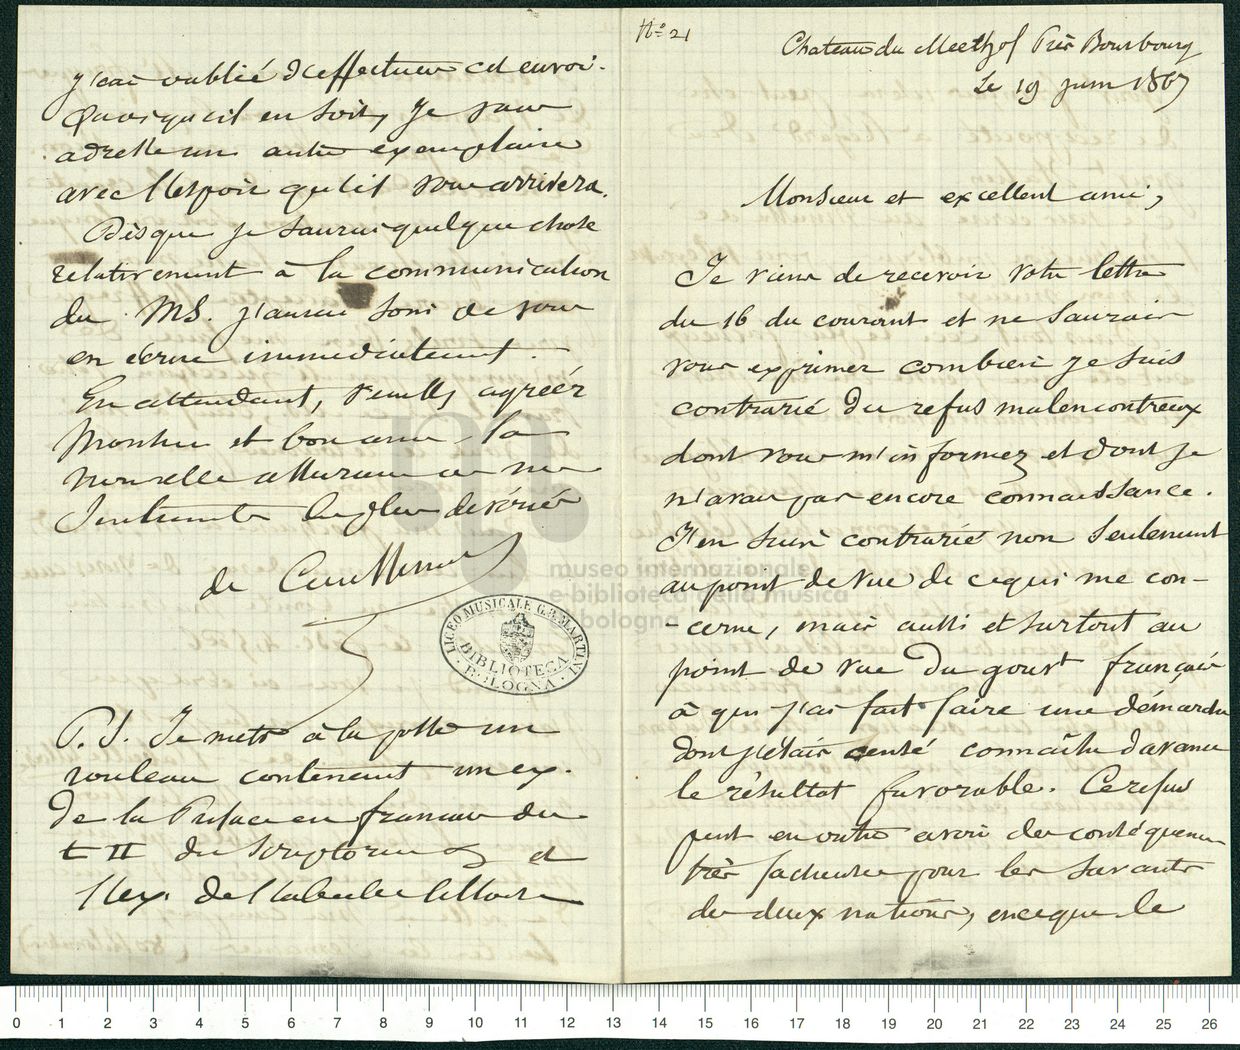 No. 21
Chateau du Meethof Près Bourbourg
Le 19 juin 1867
Monsieur et excellent ami,
Je viens de recevoir votre lettre
du 16 du courant et ne saurais
vous exprimer combien je suis
contrarié du refus malencontreux
dont vous m'informez et dont je
n'avais pas encore connaissance.
J'en suis contrarié non seulement
au point de vue de ce qui me con-
-cerne, mais aussi et surtout au
point de vue du gouvt français
à qui j'ai fait faire une démarche
dont j'étais censé connaître d'avance
le résultat favorable. Ce refus
peut en outre avoir des conséquences
très facheuses pour les savants
des deux nations, en ce que le
j'ai oublié d'effectuer cet envoi.
Quoiqu'il en soit, je vous
adresse un autre exemplaire
avec l'espoir qu'il vous arrivera.
Dès que je saurai quelque chose
relativement à la communication
du MS. j'aurai soin de vous
en écrire immédiatement.
En attendant, veuillez agréer
Monsieur et bon ami, la
nouvelle assurance de mes
sentiments les plus dévoués
de Coussemaker
P.S. Je mets à la poste un
rouleau contenant un ex.
de la Préface en français du
t II des Scriptorum et
l'ex. de
LICEO MUSICALE G.B. MARTINI
BIBLIOTECA
BOLOGNA
museo internazionale
e biblioteca della musica
di bologna
0 1 2 3 4 5 6 7 8 9 10 11 12 13 14 15 16 17 18 19 20 21 22 23 24 25 26